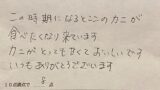 この時期になるとここのカニが
食べたくなり来ています
カニがとってもあまくておいしいです
いつもありがとうございます
10点満点で 8 点